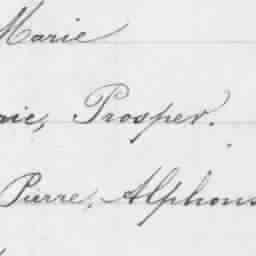 Marie
aie, Prosper.
Pierre, Alphons